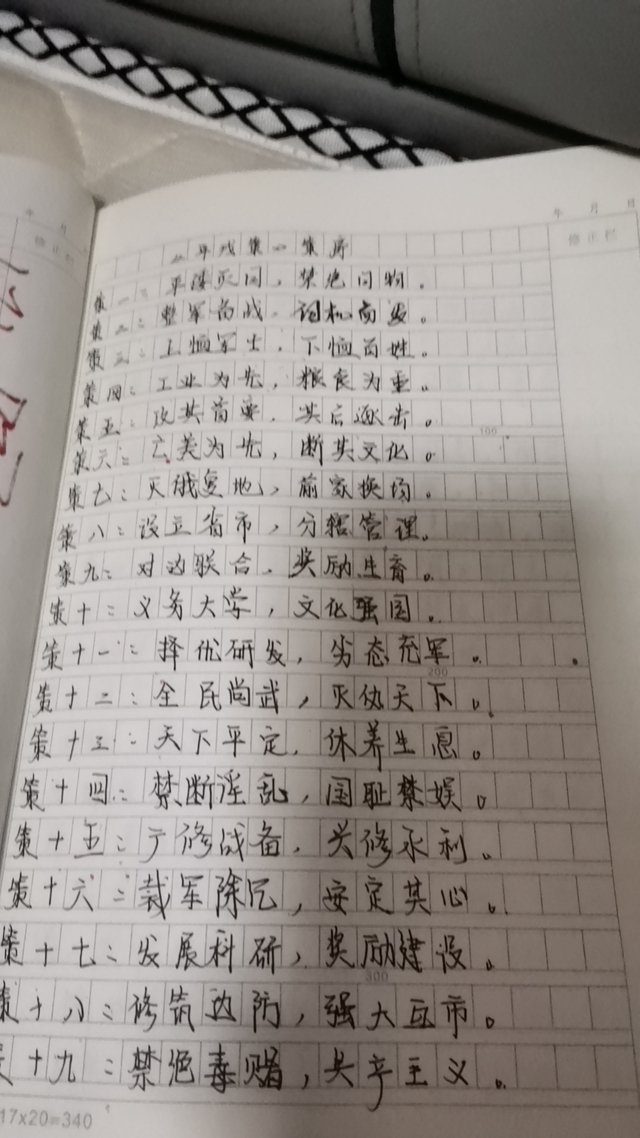 年 月
年 月 日
修正栏
修正栏
策一：平倭灭国，禁绝问物。
策二：整军备战，伺机而发。
策三：上恤军士，下恤百姓。
策四：工业为先，粮食为重。
策五：攻其首要，其后逐击。
策六：亡美为先，断其文化。
策七：灭俄复地，前家换内。
策八：设立省市，分辖管理。
策九：对边联合，奖励生育。
策十：义务大学，文化强国。
100
策十一：择优研发，劣态充军。
200
策十二：全民尚武，灭仇天下。
策十三：天下平定，休养生息。
策十四：禁断淫乱，国耻禁娱。
策十五：广修战备，兴修水利。
策十六：裁军除冗，安定其心。
策十七：发展科研，奖励建设。
300
策十八：修筑边防，强大互市。
策十九：禁绝毒赌，共产主义。
17x20=340